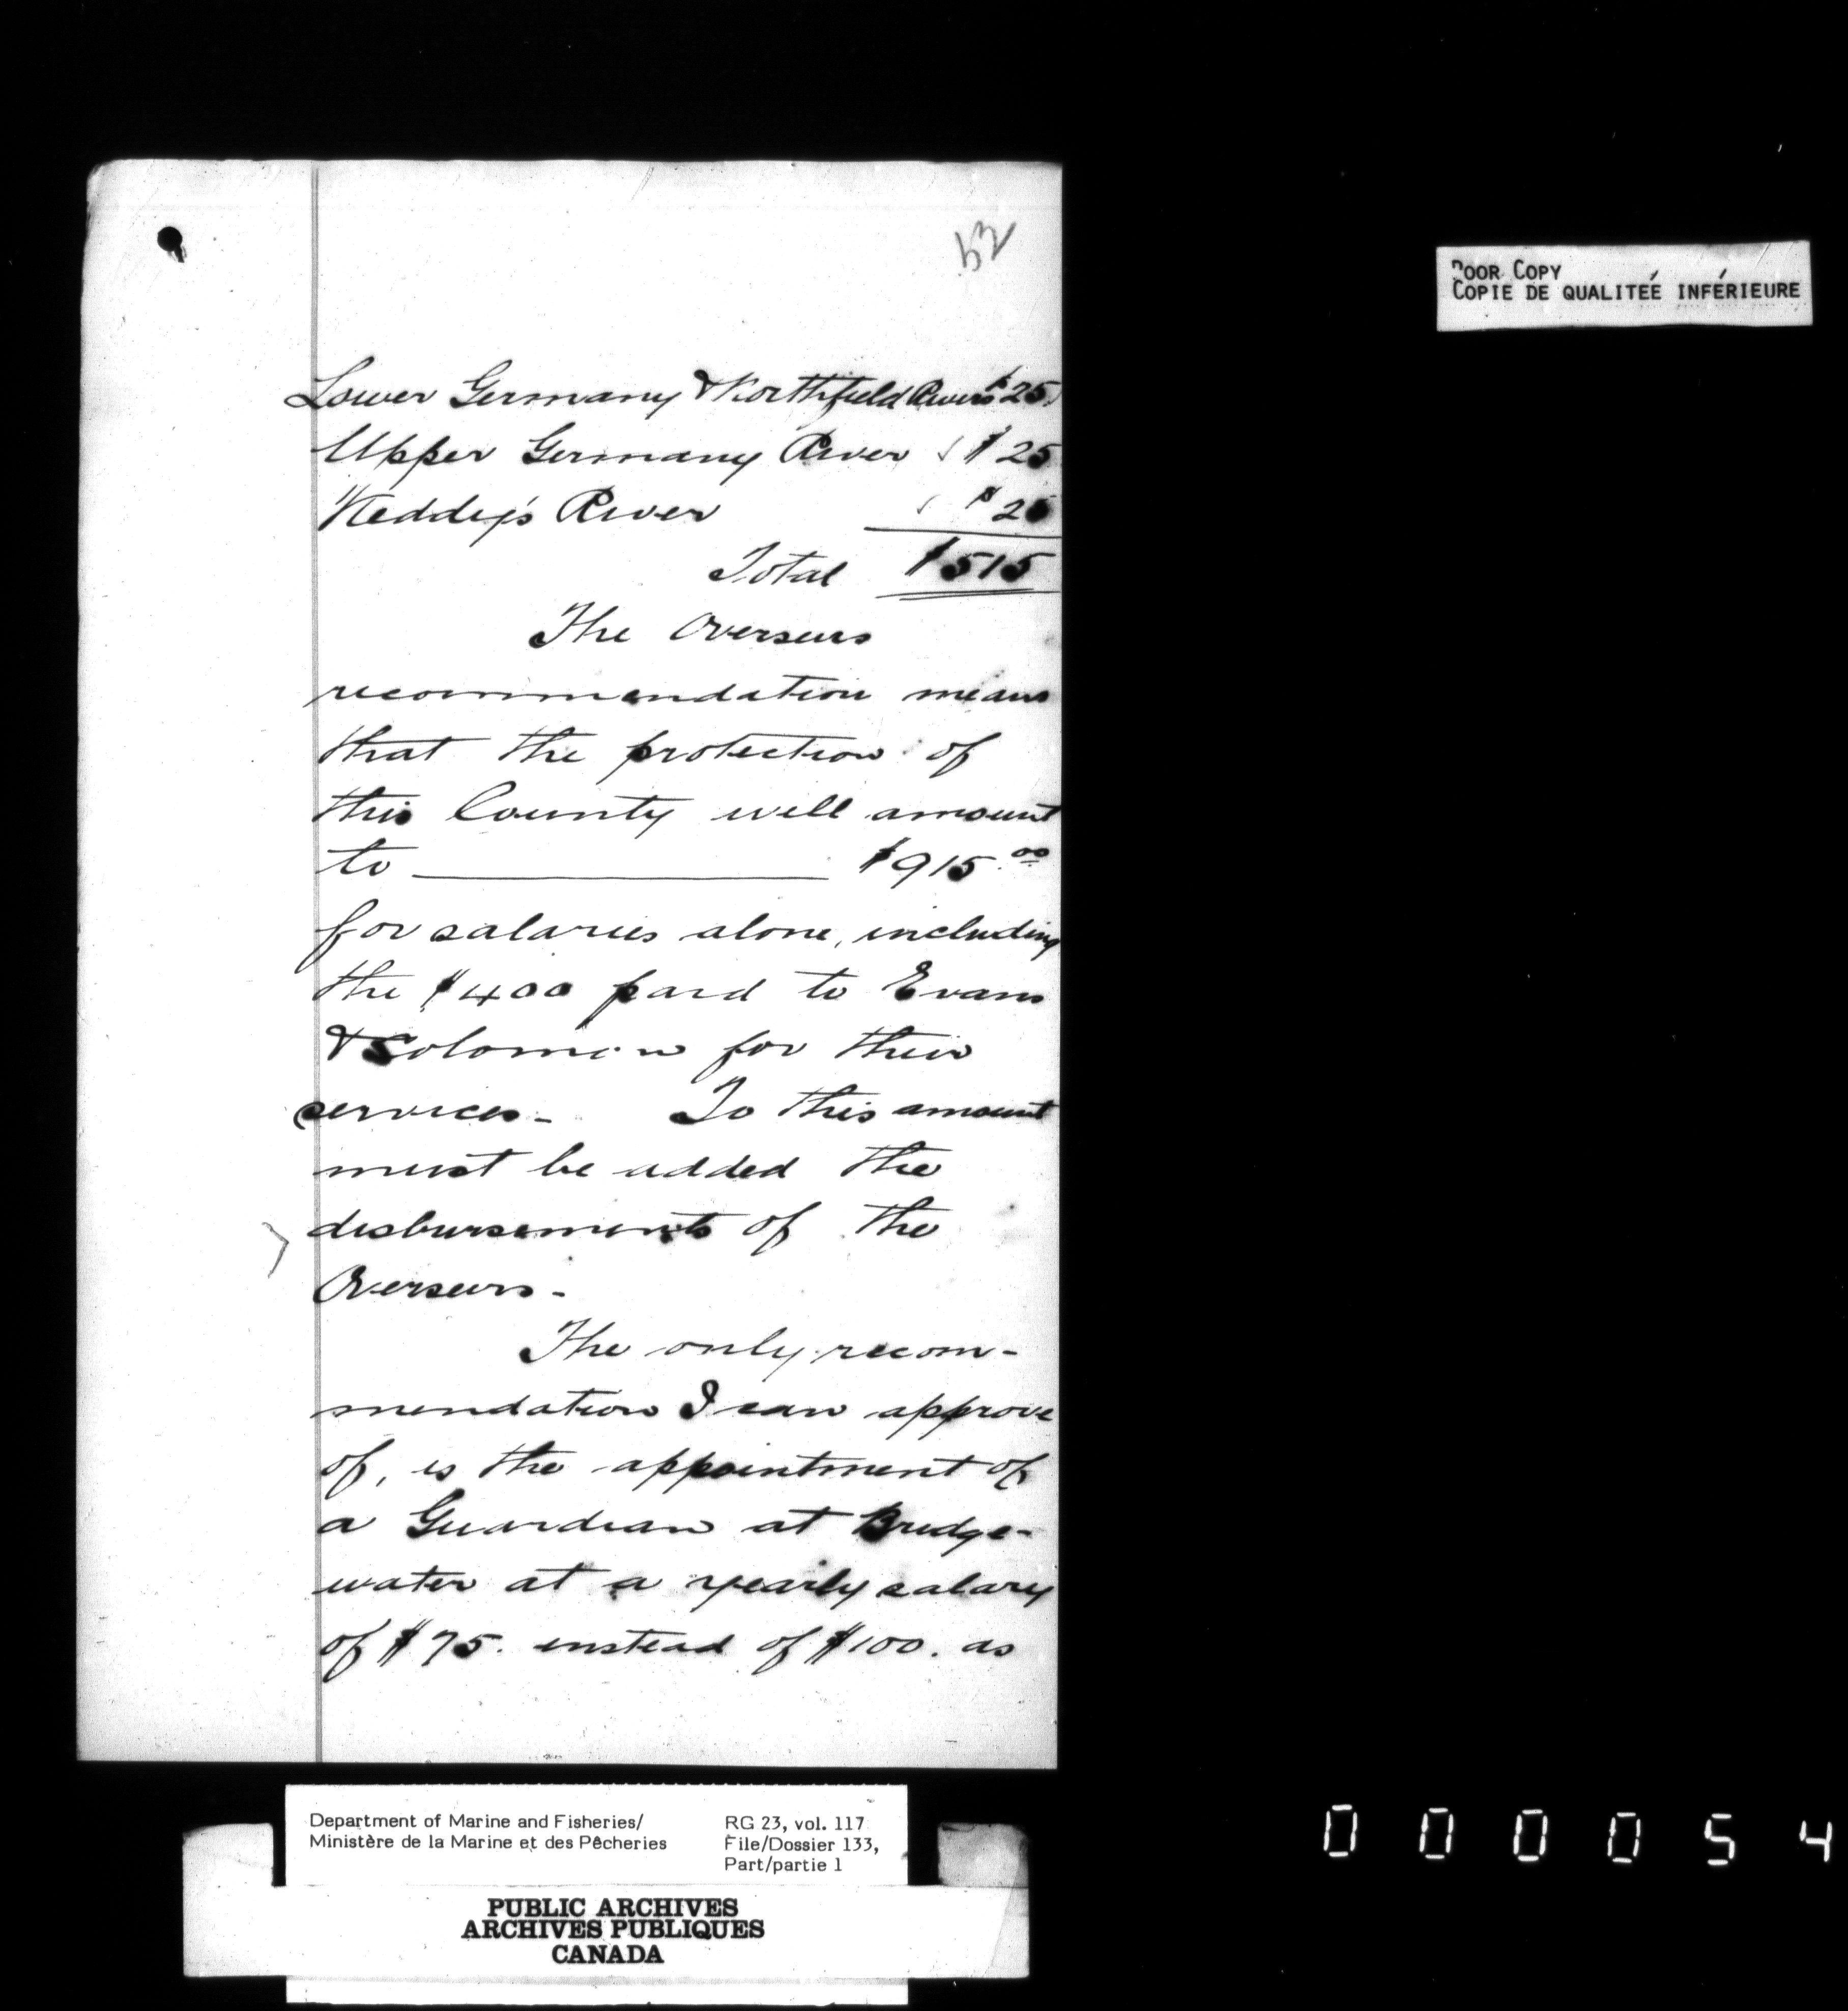 52
POOR COPY
COPIE DE QUALITEÉ INFÉRIEURE
Lower Germany & Northfield Rivers $25.
Upper Germany River $25
Keddy's River $25
Total $515
The Overseers
recommendation means
that the protection of
this County will amount
to $915.00
for salaries alone, including
the $400 paid to Evans
& Solomon for their
services - To this amount
must be added the
disbursements of the
Overseers -
The only recom-
mendation I can approve
of, is the appointment of
a Guardian at Bridge-
water at a yearly salary
of $75. instead of $100. as
Department of Marine and Fisheries/
Ministère de la Marine et des Pêcheries
RG 23, vol. 117
File/Dossier 133,
Part/partie 1
PUBLIC ARCHIVES
ARCHIVES PUBLIQUES
CANADA
000054